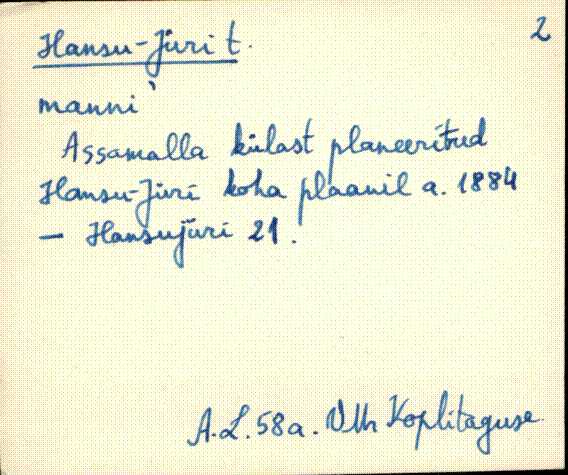 Hansu-Jüri t. 2
manni`
Assamalla külast planeeritud
Hansu-Jüri koha plaanil a. 1884
— Hansujüri 21.
A.L. 58a. VMr Koplitaguse